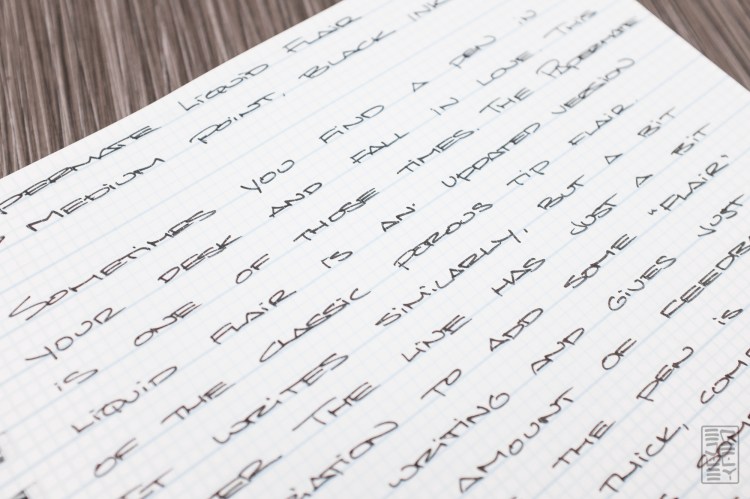 PERMATE LIQUID FLAIR
MEDIUM POINT, BLACK INK
SOMETIMES YOU FIND A PEN IN
YOUR DESK AND FALL IN LOVE. THIS
IS ONE OF THOSE TIMES. THE PAPERMATE
LIQUID FLAIR IS AN UPDATED VERSION
OF THE CLASSIC POROUS TIP FLAIR.
WRITES SIMILARLY, BUT A BIT
THE LINE HAS JUST A BIT
TO ADD SOME "FLAIR"
WRITING AND GIVES JUST
AMOUNT OF FEEDBA
THE PEN IS
THICK, COM